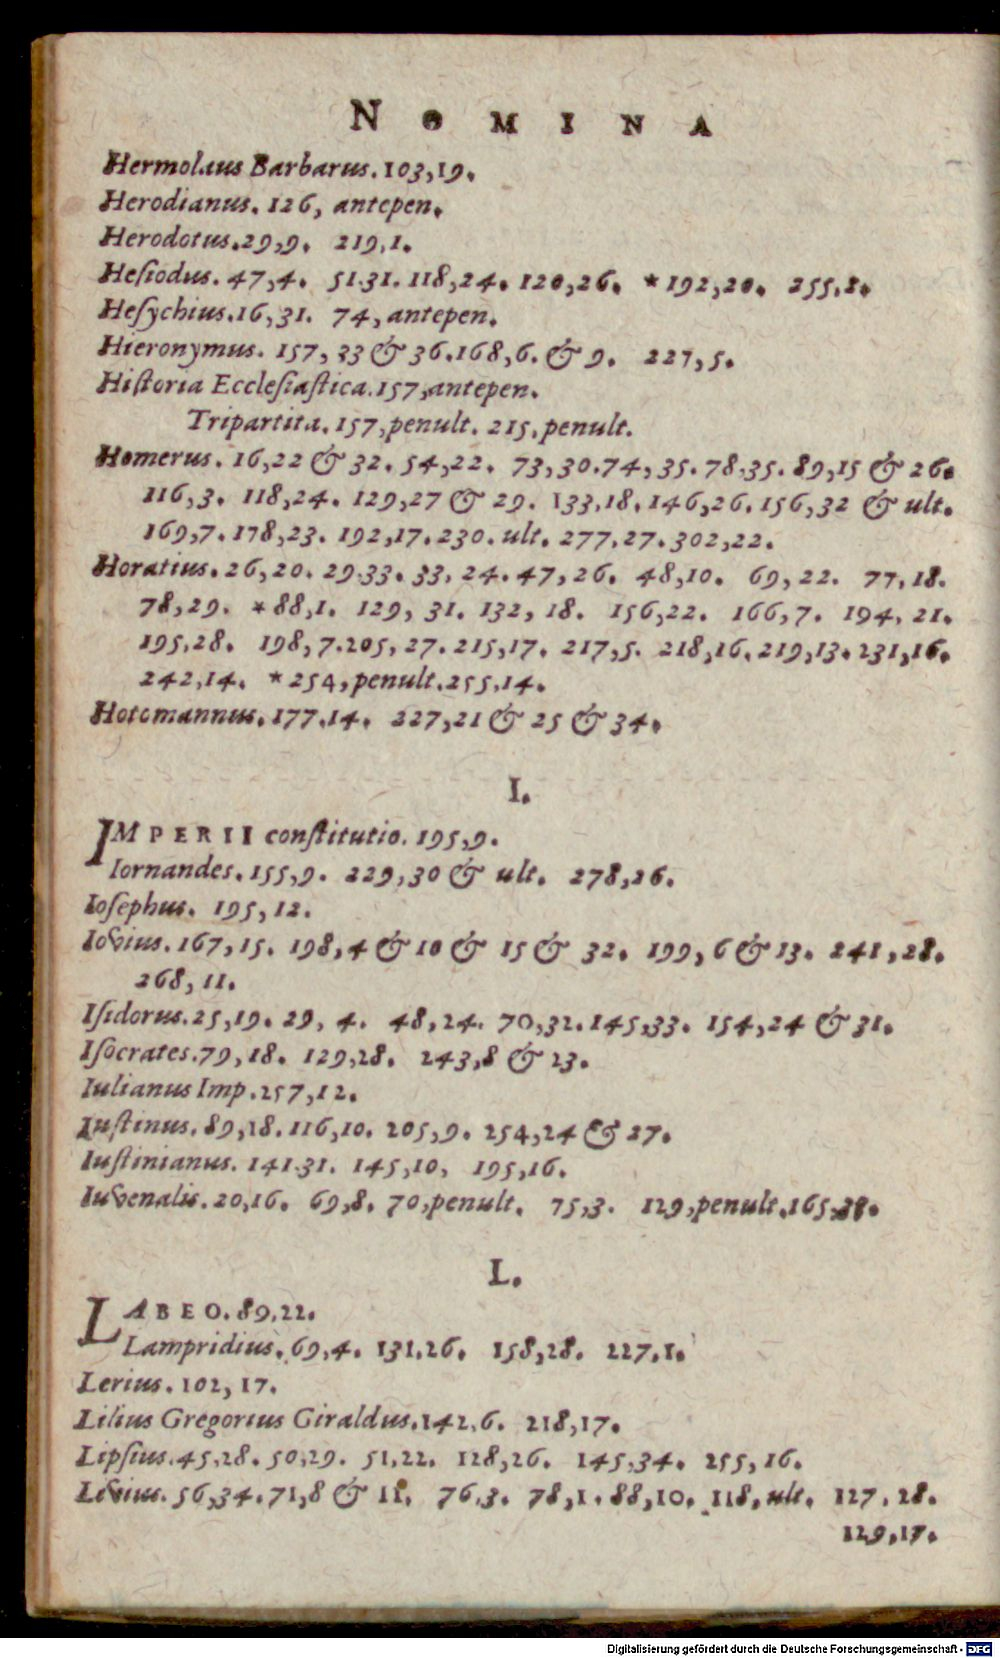 NOMINA
Hermolaus Barbarus. 103,19.
Herodianus. 126, antepen.
Herodotus. 29,9. 219,1.
Heſiodus. 47,4. 51.31. 118,24. 120,26. *192,20. 255,2.
Heſychius. 16,31. 74, antepen.
Hieronymus. 157, 33 & 36. 168,6. & 9. 227,5.
Hiſtoria Eccleſiaſtica. 157, antepen.
Tripartita. 157, penult. 215, penult.
Homerus. 16,22 & 32. 54,22. 73,30. 74,35. 78.35. 89,15 & 26.
116,3. 118,24. 129,27 & 29. 133,18. 146,26. 156,32 & ult.
169,7. 178,23. 192,17. 230. ult. 277.27. 302,22.
Horatius. 26,20. 29.33. 33, 24. 47,26. 48,10. 69,22. 77,18.
78,29. *88,1. 129, 31. 132, 18. 156,22. 166,7. 194, 21.
195,28. 198,7. 205, 27. 215,17. 217,5. 218,16. 219,13. 231,16.
242,14. *254, penult. 255,14.
Hotomannus. 177.14. 227,21 & 25 & 34.
I.
IMPERII conſtitutio. 195,9.
Iornandes. 155,9. 229,30 & ult. 278,26.
Ioſephus. 195, 12.
Iovius. 167,15. 198,4 & 10 & 15 & 32. 199, 6 & 13. 241,28.
268, 11.
Iſidorus. 25,19. 29, 4. 48,24. 70,32. 145,33. 154,24 & 31.
Iſocrates. 79,18. 129,28. 243,8 & 23.
Iulianus Imp. 257,12.
Iuſtinus. 89,18. 116,10. 205,9. 254,24 & 27.
Iuſtinianus. 141.31. 145,10, 195,16.
Iuvenalis. 20,16. 69,8. 70, penult. 75,3. 129, penult. 165,
L.
LABEO. 89,22.
Lampridius. 69,4. 131.26. 158,28. 227,1.
Lerius. 102, 17.
Lilius Gregorius Giraldus. 142,6. 218,17.
Lipſius. 45,28. 50,29. 51,22. 128,26. 145,34. 255, 16.
Livius. 56,34. 71,8 & 11. 76,3. 78,1. 88,10. 118, ult. 127, 28.
129,17.
Digitalisierung gefördert durch die Deutsche Forschungsgemeinschaft - DFG